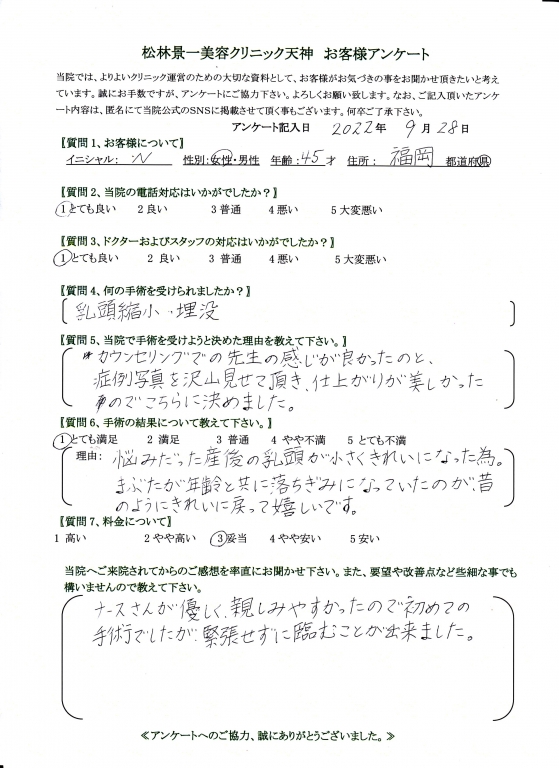 松林景一美容クリニック天神　お客様アンケート
当院では、よりよいクリニック運営のための大切な資料として、お客様がお気づきの事をお聞かせ頂きたいと考え
ています。誠にお手数ですが、アンケートにご協力下さい。よろしくお願い致します。なお、ご記入頂いたアンケ
ート内容は、匿名にて当院公式のSNSに掲載させて頂く事もございます。何卒ご了承下さい。
アンケート記入日　2022年　9月28日
【質問1、お客様について】
イニシャル：　N　性別：女性・男性　年齢：45才　住所：　福岡　都道府県
【質問2、当院の電話対応はいかがでしたか？】
1とても良い　2 良い　3 普通　4 悪い　5 大変悪い
【質問3、ドクターおよびスタッフの対応はいかがでしたか？】
1とても良い　2 良い　3 普通　4 悪い　5 大変悪い
【質問4、何の手術を受けられましたか？】
乳頭縮小、埋没
【質問5、当院で手術を受けようと決めた理由を教えて下さい。】
カウンセリングでの先生の感じが良かったのと、
症例写真を沢山見せて頂き、仕上がりが美しかった
のでこちらに決めました。
【質問6、手術の結果について教えて下さい。】
1とても満足　2 満足　3 普通　4 やや不満　5 とても不満
理由：　悩みだった産後の乳頭が小さくきれいになった為。
まぶたが年齢と共に落ちぎみになっていたのが、昔
のようにきれいに戻って嬉しいです。
【質問7、料金について】
1 高い　2 やや高い　3 妥当　4 やや安い　5 安い
当院へご来院されてからのご感想を率直にお聞かせ下さい。また、要望や改善点など些細な事でも
構いませんので教えて下さい。
ナースさんが優しく、親しみやすかったので初めての
手術でしたが、緊張せずに臨むことが出来ました。
≪アンケートへのご協力、誠にありがとうございました。≫